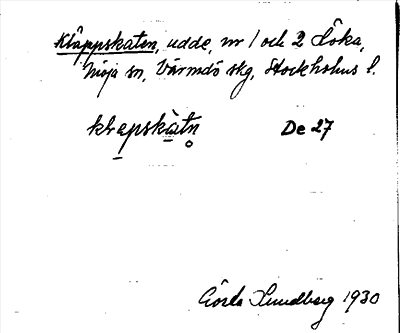 Kläppskaten, udde, nr 1 och 2 Löka,
Möja sn, Värmdö skg, Stockholms l.
klapskàtn De 27
Gösta Lundberg 1930